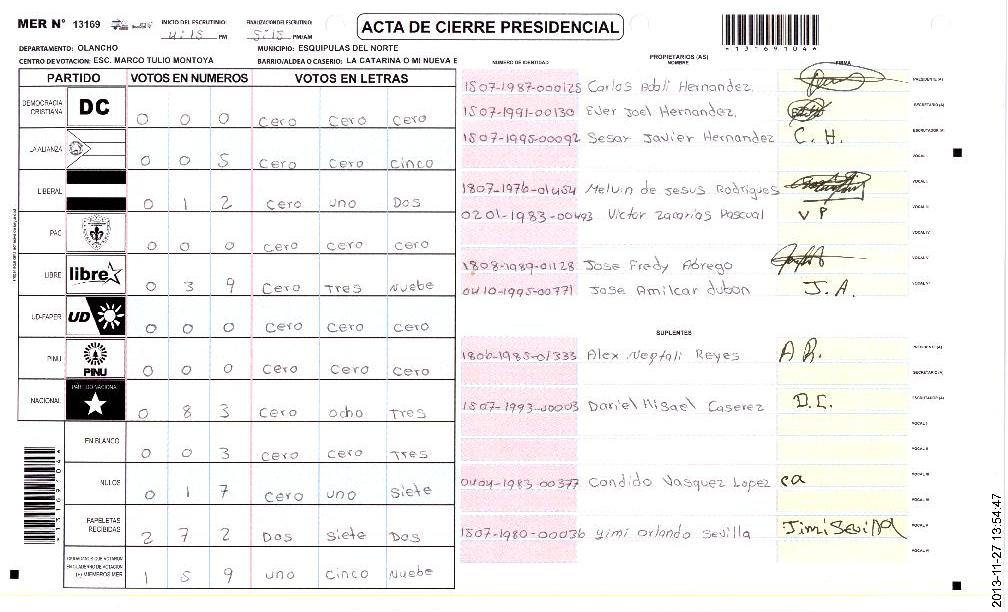 MER N° 13169 INICIO DEL ESCRUTINIO: 4:15 PM FINALIZACION DEL ESCRUTINIO: 5:15 PM/AM ACTA DE CIERRE PRESIDENCIAL
*1316910 4*
DEPARTAMENTO: OLANCHO MUNICIPIO: ESQUIPULAS DEL NORTE
CENTRO DE VOTACION: ESC. MARCO TULIO MONTOYA BARRIO/ALDEA O CASERIO: LA CATARINA O MI NUEVA E
PARTIDO VOTOS EN NUMEROS VOTOS EN LETRAS
DEMOCRACIA CRISTIANA DC 0 0 0 Cero Cero Cero
LA ALIANZA 0 0 5 Cero Cero Cinco
LIBERAL 0 1 2 Cero uno Dos
PAC 0 0 0 Cero Cero Cero
LIBRE libre 0 3 9 Cero Tres Nuebe
UD-FAPER UD 0 0 0 Cero Cero Cero
PINU PINU 0 0 0 Cero Cero Cero
NACIONAL PARTIDO NACIONAL 0 8 3 Cero ocho Tres
EN BLANCO 0 0 3 Cero Cero Tres
NULOS 0 1 7 Cero uno Siete
PAPELETAS RECIBIDAS 2 7 2 Dos siete Dos
CIUDADANOS QUE VOTARON EN CUADERNO DE VOTACION (+) MIEMBROS MER 1 5 9 uno cinco Nuebe
PROPIETARIOS (AS)
NUMERO DE IDENTIDAD NOMBRE FIRMA
1507-1987-000125 Carlos Adali Hernandez. PRESIDENTE (A)
1507-1991-00130 Ever Joel Hernandez. SECRETARIO (A)
1507-1995-00092 Sesar Javier Hernandez C. H. ESCRUTADOR (A)
VOCAL I
1807-1976-01454 Melvin de Jesus Rodrigues VOCAL II
0201-1983-00493 Victor Zacarias Pascual V P VOCAL III
VOCAL IV
1808-1989-01128 Jose Fredy Abrego VOCAL V
0410-1995-00771 Jose Amilcar dubon J. A. VOCAL VI
SUPLENTES
1806-1985-01333 Alex Neptali Reyes A R. PRESIDENTE (A)
SECRETARIO (A)
1507-1993-00003 Daniel Misael Caserez D. C. ESCRUTADOR (A)
VOCAL I
VOCAL II
0404-1983-00377 Candido Vasquez Lopez ca VOCAL III
VOCAL IV
1507-1980-00036 yimi orlando Sevilla Jimi Sevilla VOCAL V
VOCAL VI
2013-11-27 13:54:47